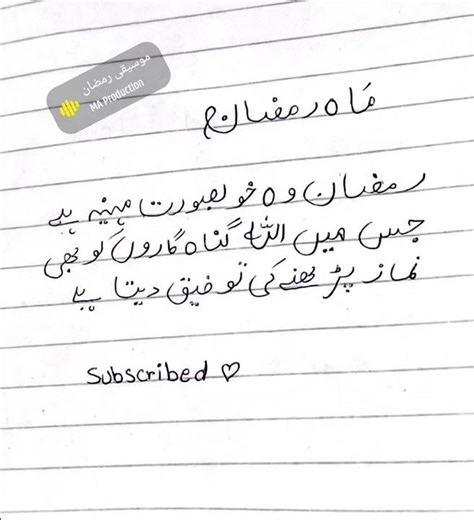 موسیقی رمضان
MA Production
ماہ رمضان
رمضان وہ خوبصورت مہینہ ہے
جس میں اللہ گناہ گاروں کو بھی
نماز پڑھنے کی توفیق دیتا ہے
Subscribed ♡